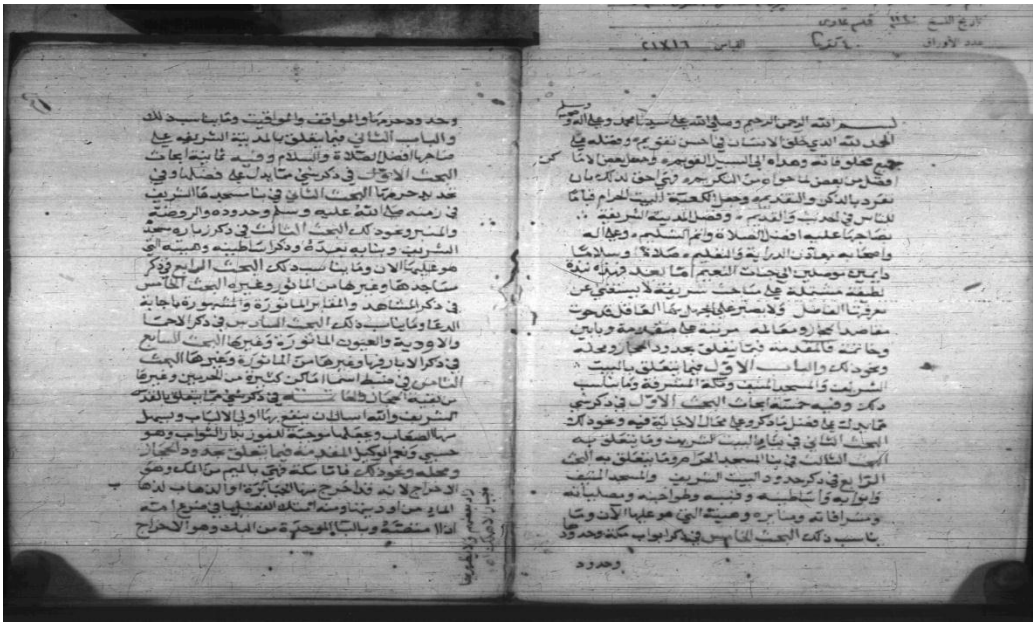 تاريخ النسخ قلم عادى
عدد الأوراق القياس ١٦×٢١
وسلم
بسم الله الرحمن الرحيم وصلى الله على سيدنا محمد وعلى آله
الحمد لله الذي خلق الانسان في احسن تقويم وفضله على
جميع مخلوقاته وهداه الى السبيل القويم وجعل بعض
افضل من بعض لما حواه من التكريم حق لذلك بان
بالذكر والتقديم وجعل الكعبة البيت الحرام قياما
للناس في الحديث والقديم وفضل المدينة الشريفة
بصاحبها عليه افضل الصلاة واتم التسليم وعلى اله
واصحابه الدراية صلاة وسلاما
دايمين موصلين الى جنات النعيم اما بعد فهذه نبذة
لطيفة مشتملة على مباحث شريفة لا يستغني عن
معرفتها الفاضل ولا يصبر على الجهل بها العاقل حوت
مقاصد ومعالمه مرتبة على مقدمة وبابين
وخاتمة فالمقدمة فيما يتعلق بحدود الحجاز
ونحو ذلك والباب الاول فيما يتعلق بالبيت
الشريف والمسجد المنيف ومكة المشرفة وما يناسب
ذلك وفيه خمسة ابحاث البحث الاول في ذكر شي
مما يدل على فضل ما ذكر وعلى فيه ونحو ذلك
البحث الثاني في بناء البيت الشريف وما يتعلق به
البحث الثالث في بنا المسجد الحرام وما يتعلق به البحث
الرابع في ذكر حدود البيت الشريف والمسجد المنيف
وابوابه واساطينه
ومنابره وهيئته التي هو عليها الآن وما
يناسب ذلك البحث الخامس في ذكر ابواب مكة وحدودها
وحدود
وحدود حرمها والمواقف والمواقيت وما يناسب ذلك
والباب الثاني فيما يتعلق بالمدينة الشريفة على
صاحبها افضل الصلاة والسلام وفيه ثمانية ابحاث
البحث الاول في ذكر شي مما يدل على فضلها وفي
تحديد حرمها البحث الثاني في بنا مسجدها الشريف
في زمنه صلى الله عليه وسلم وحدوده والروضة
والمنبر ونحو ذلك البحث الثالث في ذكر زيادة مسجده
الشريف وبنايه بعده وذكر اساطينه وهيئته التي
هو عليها الآن وما يناسب ذلك البحث الرابع في ذكر
مساجدها وغيرها من الماثور وغيره البحث الخامس
في ذكر المشاهد والمقابر الماثورة والمشهورة باجابة
الدعا وما يناسب ذلك البحث السادس في ذكر
والاودية والعيون الماثورة وغيرها البحث السابع
في ذكر الابار وغيرها من الماثورة وغيرها البحث
الثامن في ضبط اسما اماكن كثيرة من الحرمين وغيرها
من بقية الحجاز والخاتمة في ذكر شي مما يتعلق بالقدس
الشريف والله اسال ان ينفع بها اولي الالباب ويسهل
بها الصعاب ويجعلها موجبة للفوز بدار الثواب وهو
حسبي ونعم الوكيل المقدمة فيما يتعلق بحدود الحجاز
ومحله ونحو ذلك فاما مكة فهي بالميم من المك وهو
الاخراج لانه قد اخرج منها الجبابرة او لذهاب
الماء من اوديتها ومنه امتك الفصيل ما في ضرع امه
اذا امتصه وبالباء الموحدة من البك وهو الاخراج